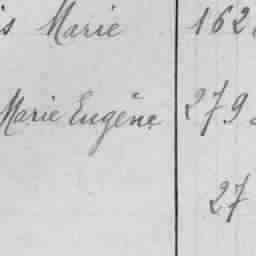 is Marie 162
Marie Eugène 279
27